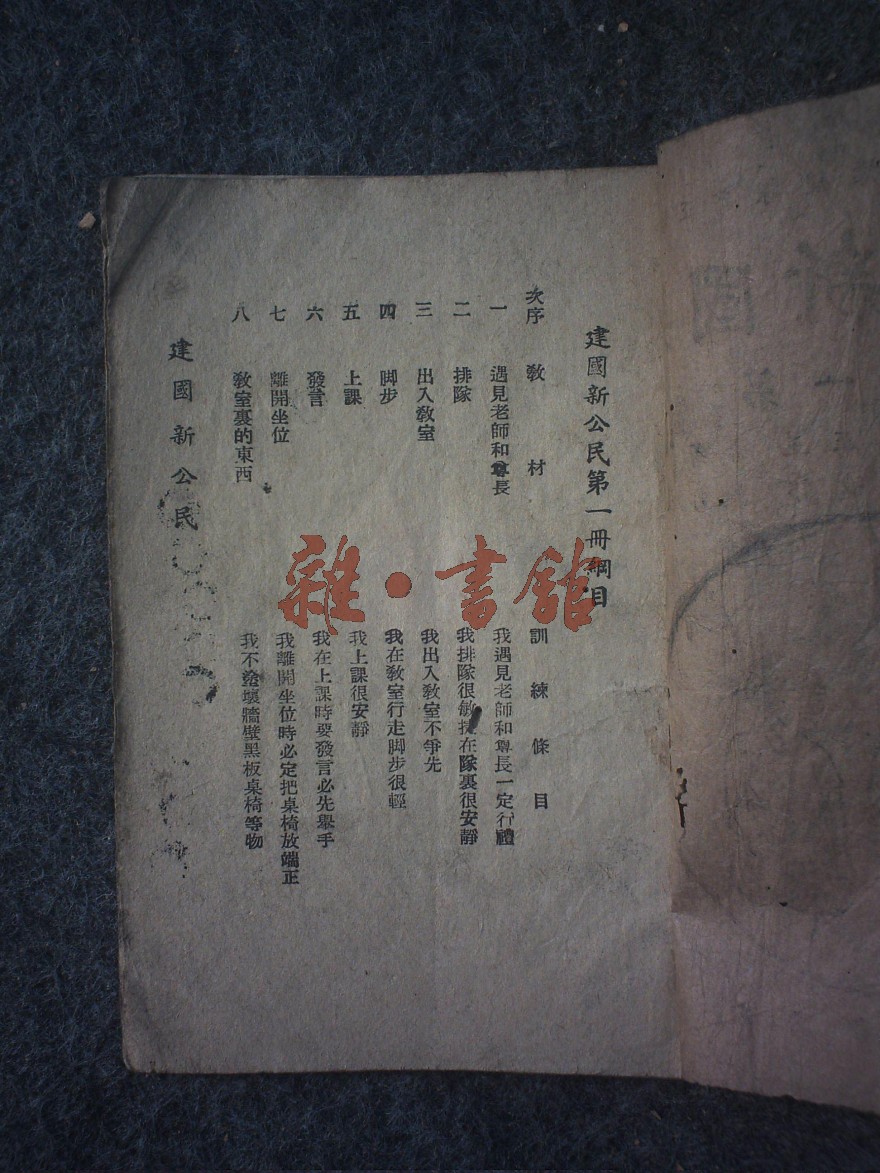 建國新公民第一冊綱目
次序 敎材 訓練條目
一 遇見老師和尊長 我遇見老師和尊長一定行禮
二 排隊 我排隊很敏捷在隊裏很安靜
三 出入敎室 我出入敎室不爭先
四 脚步 我在敎室行走脚步很輕
五 上課 我上課很安靜
六 發言 我在上課時要發言必先舉手
七 離開坐位 我離開坐位時必定把桌椅放端正
八 敎室裏的東西 我不塗壞牆壁黑板桌椅等物
建國新公民
雜·書館